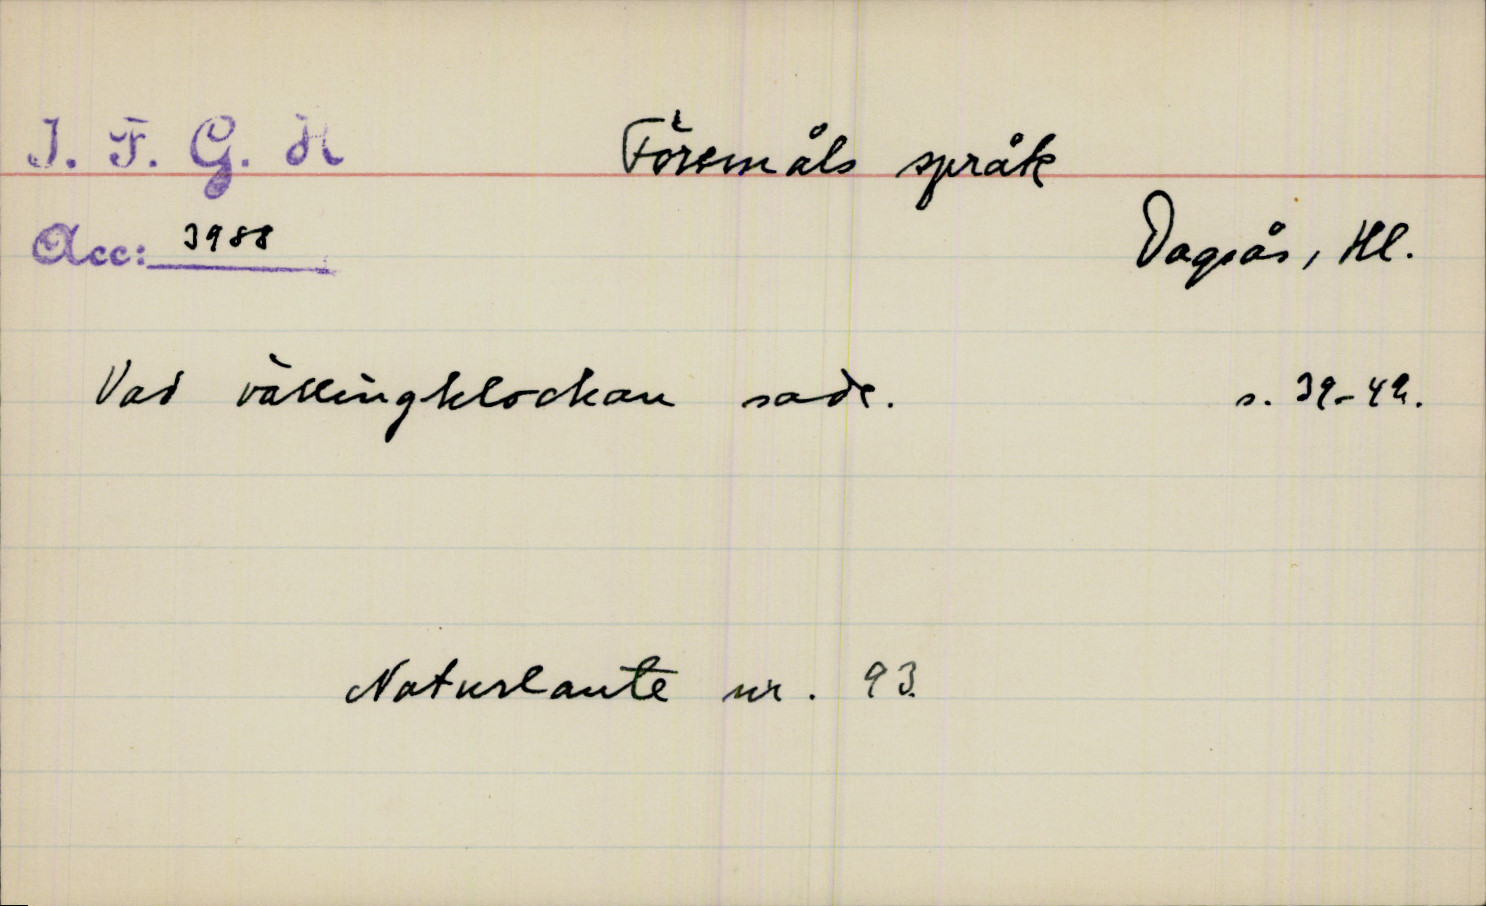 I. F. G. H Föremåls språk
Acc: 3988 Dagsås, Hl.
Vad vällingklockan sade. s. 39-42.
Naturlaute nr. 93.